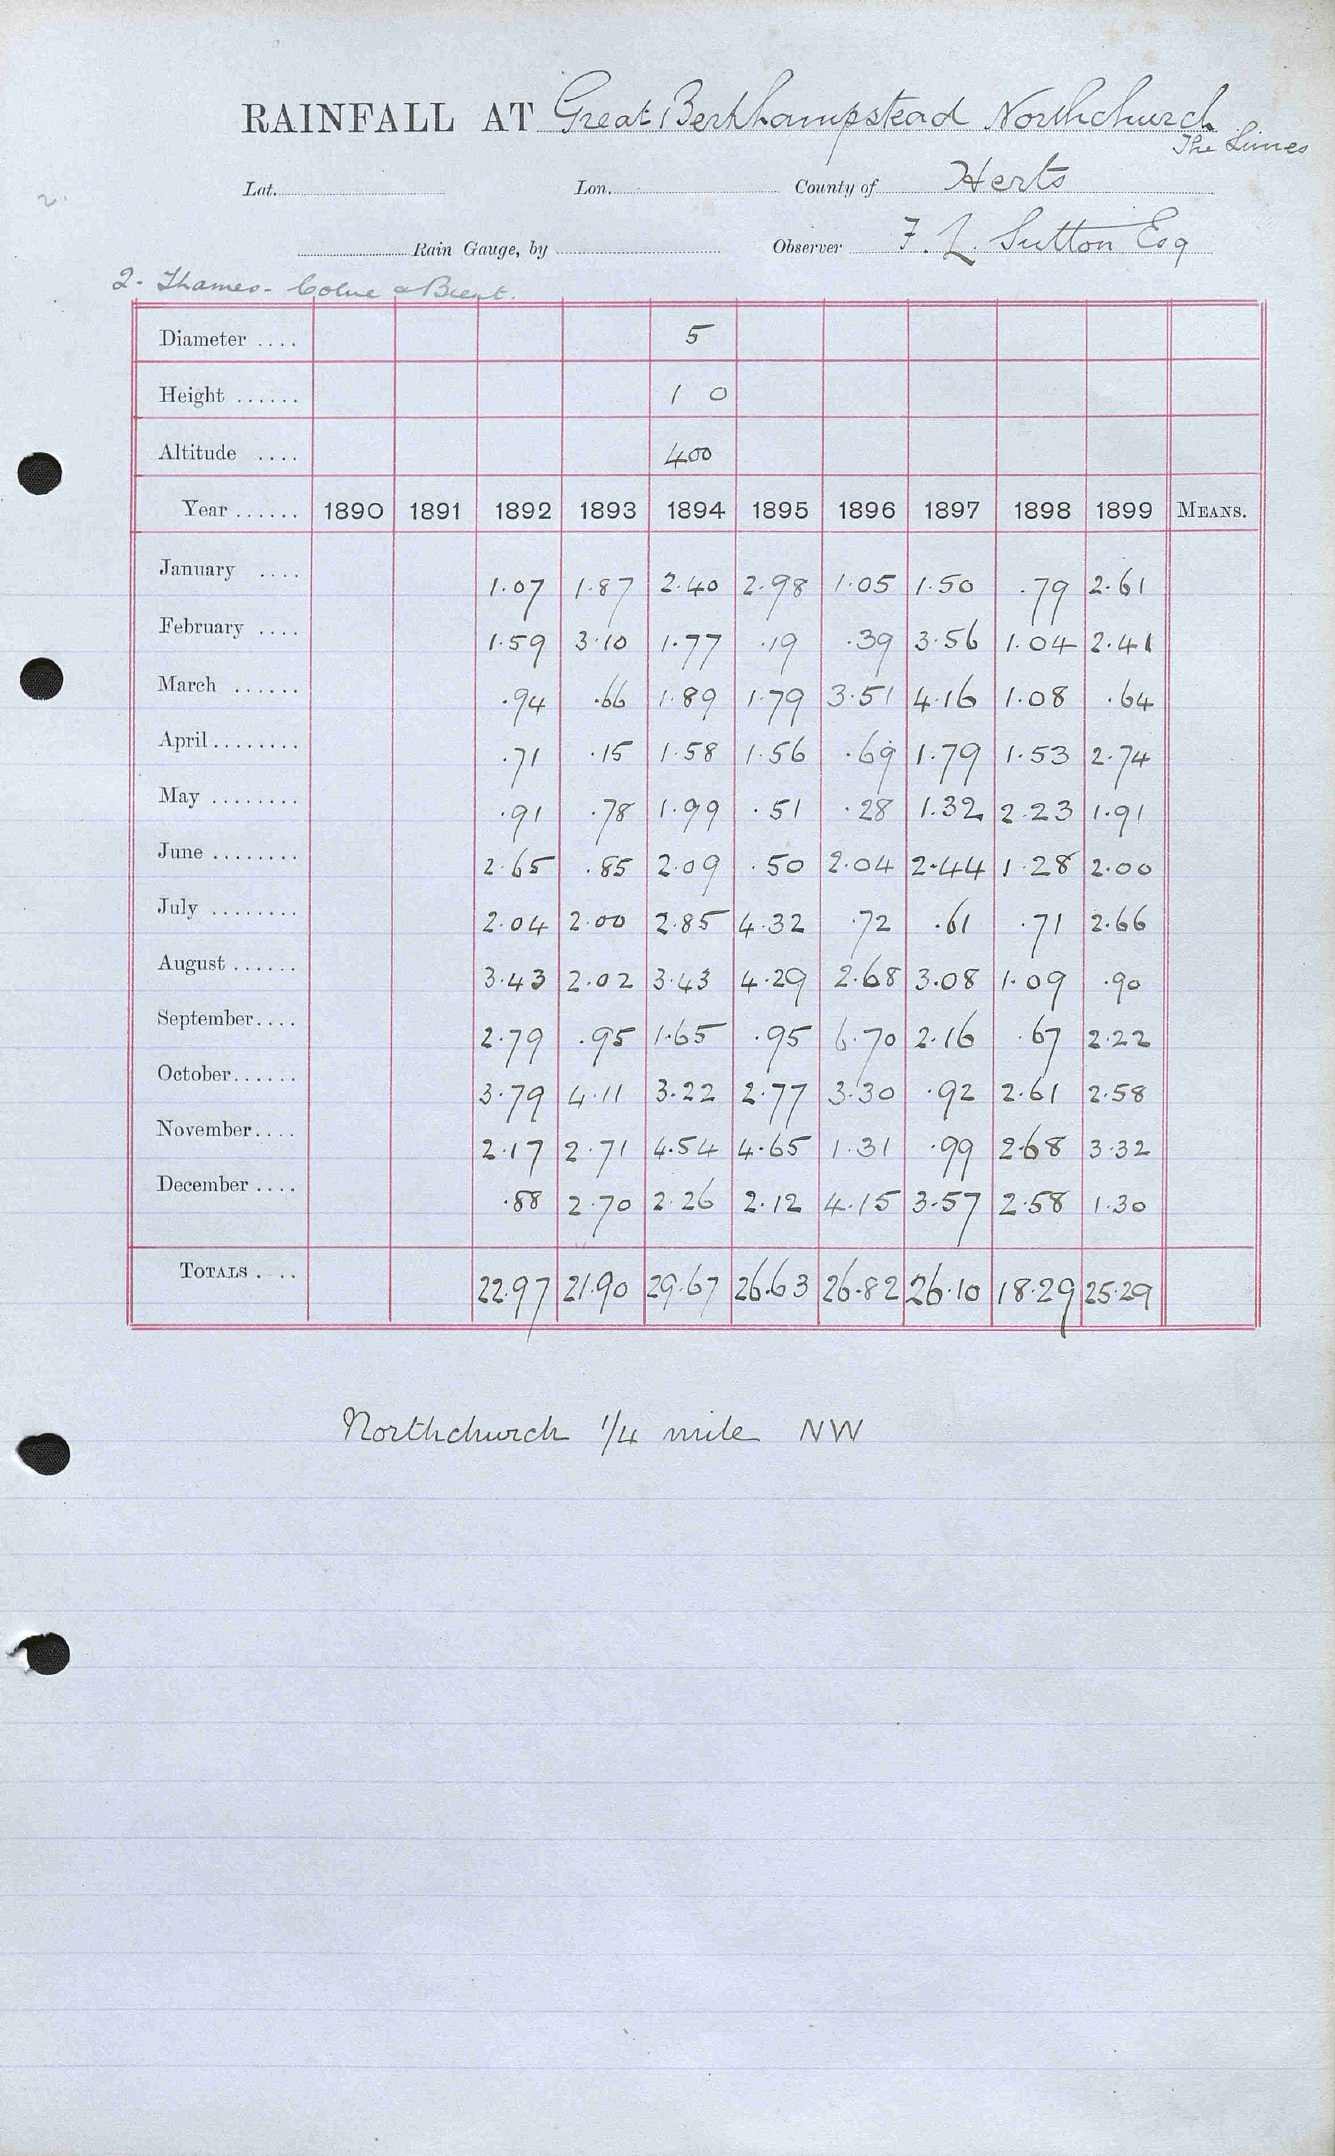 RAINFALL AT Great Berkhampstead Northchurch
The Limes
Lat. Lon. County of Herts
2.
Rain Gauge, by Observer F. L. Sutton Esq
2. Thames - Colne & Brent.
Diameter .... 5
Height ...... 1 0
Altitude .... 400
Year ...... 1890 1891 1892 1893 1894 1895 1896 1897 1898 1899 MEANS.
January .... 1.07 1.87 2.40 2.98 1.05 1.50 .79 2.61
February .... 1.59 3.10 1.77 .19 .39 3.56 1.04 2.41
March ...... .94 .66 1.89 1.79 3.51 4.16 1.08 .64
April ........ .71 .15 1.58 1.56 .69 1.79 1.53 2.74
May ........ .91 .78 1.99 .51 .28 1.32 2.23 1.91
June ........ 2.65 .85 2.09 .50 2.04 2.44 1.28 2.00
July ........ 2.04 2.00 2.85 4.32 .72 .61 .71 2.66
August ...... 3.43 2.02 3.43 4.29 2.68 3.08 1.09 .90
September .... 2.79 .95 1.65 .95 6.70 2.16 .67 2.22
October ...... 3.79 4.11 3.22 2.77 3.30 .92 2.61 2.58
November .... 2.17 2.71 4.54 4.65 1.31 .99 2.68 3.32
December .... .88 2.70 2.26 2.12 4.15 3.57 2.58 1.30
TOTALS .... 22.97 21.90 29.67 26.63 26.82 26.10 18.29 25.29
Northchurch 1/4 mile NW